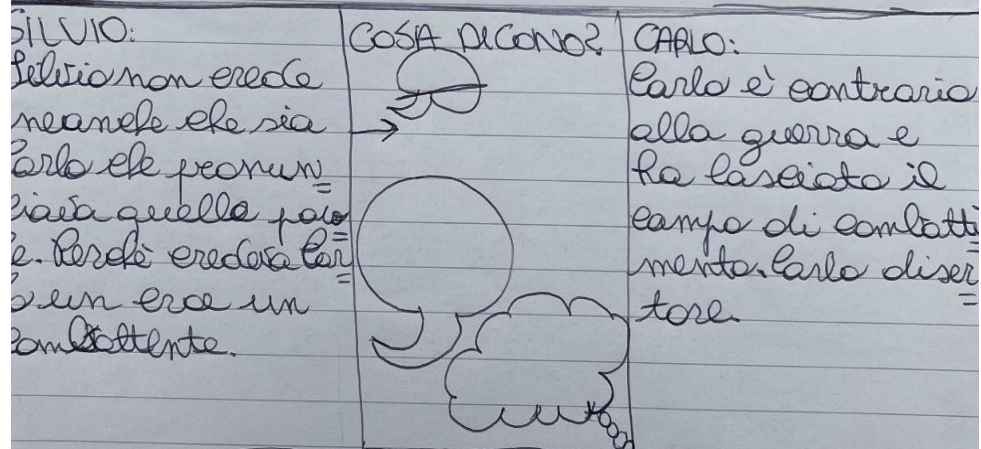 SILVIO:
Silvio non crede
neanche che sia
Carlo che pronun=
ciava quelle paro=
le. Perchè credeva Car=
lo un eroe un
combattente.
COSA DICONO?
CARLO:
Carlo è contrario
alla guerra e
ha lasciato il
campo di combatti=
mento. Carlo diser=
tore.